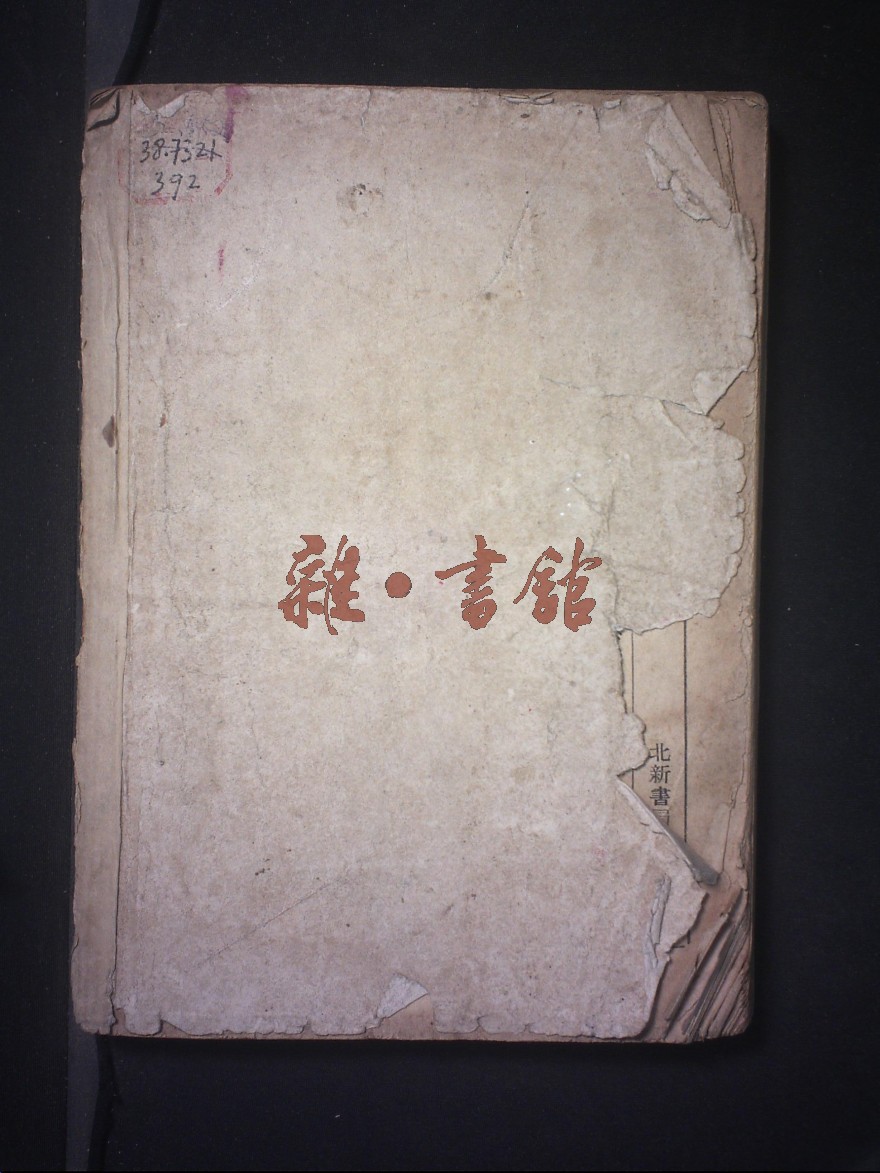 38.7321
392
雜•書館
北新書局